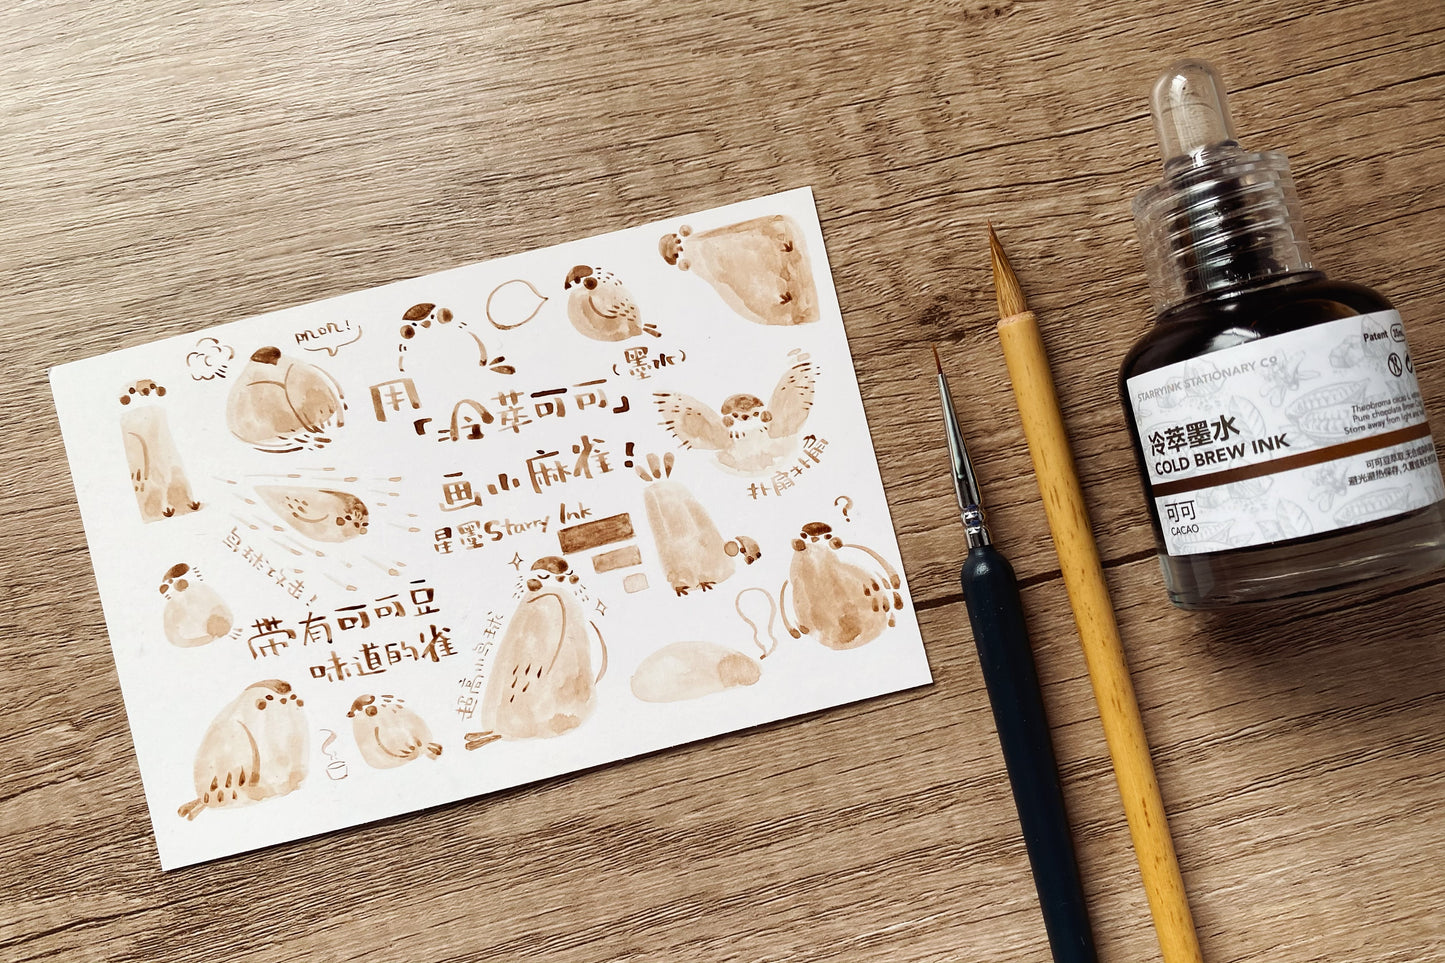 mon!
用「冷萃可可」(墨水)
画小麻雀!
星墨 Starry Ink
扑扇扑扇
?
鸟球攻击!
带有可可豆
味道的雀
超高小鸟球
STARRYINK STATIONARY CO
Patent
冷萃墨水
COLD BREW INK
Theobroma cacao L.
Pure chocolate
Store away from light and
可可豆萃取,无
避光避热保存,久置
可可
CACAO